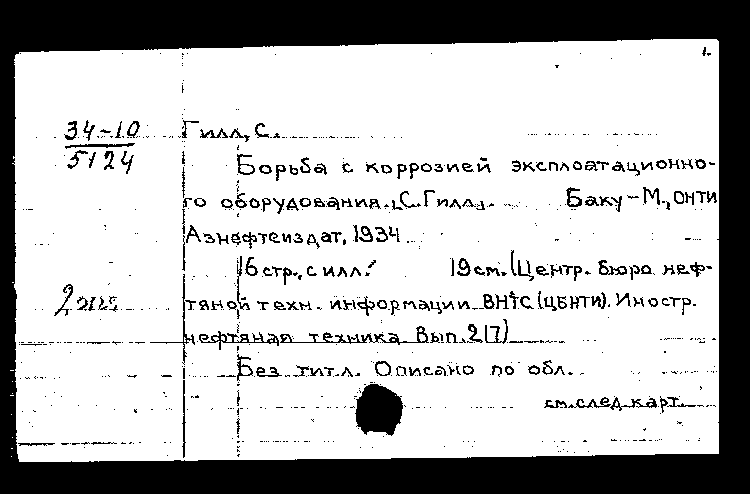 1.
34-10
5124
Гилл, С.
Борьба с коррозией эксплоатационно-
го оборудования. [С. Гилл]. Баку-М., ОНТИ
Азнефтеиздат, 1934
16 стр., с илл. 19 см. (Центр. бюро неф-
2 экз
тяной техн. информации ВНТС (ЦБНТИ). Иностр.
нефтяная техника Вып. 2(7)
Без тит. л. Описано по обл.
см. след. карт.